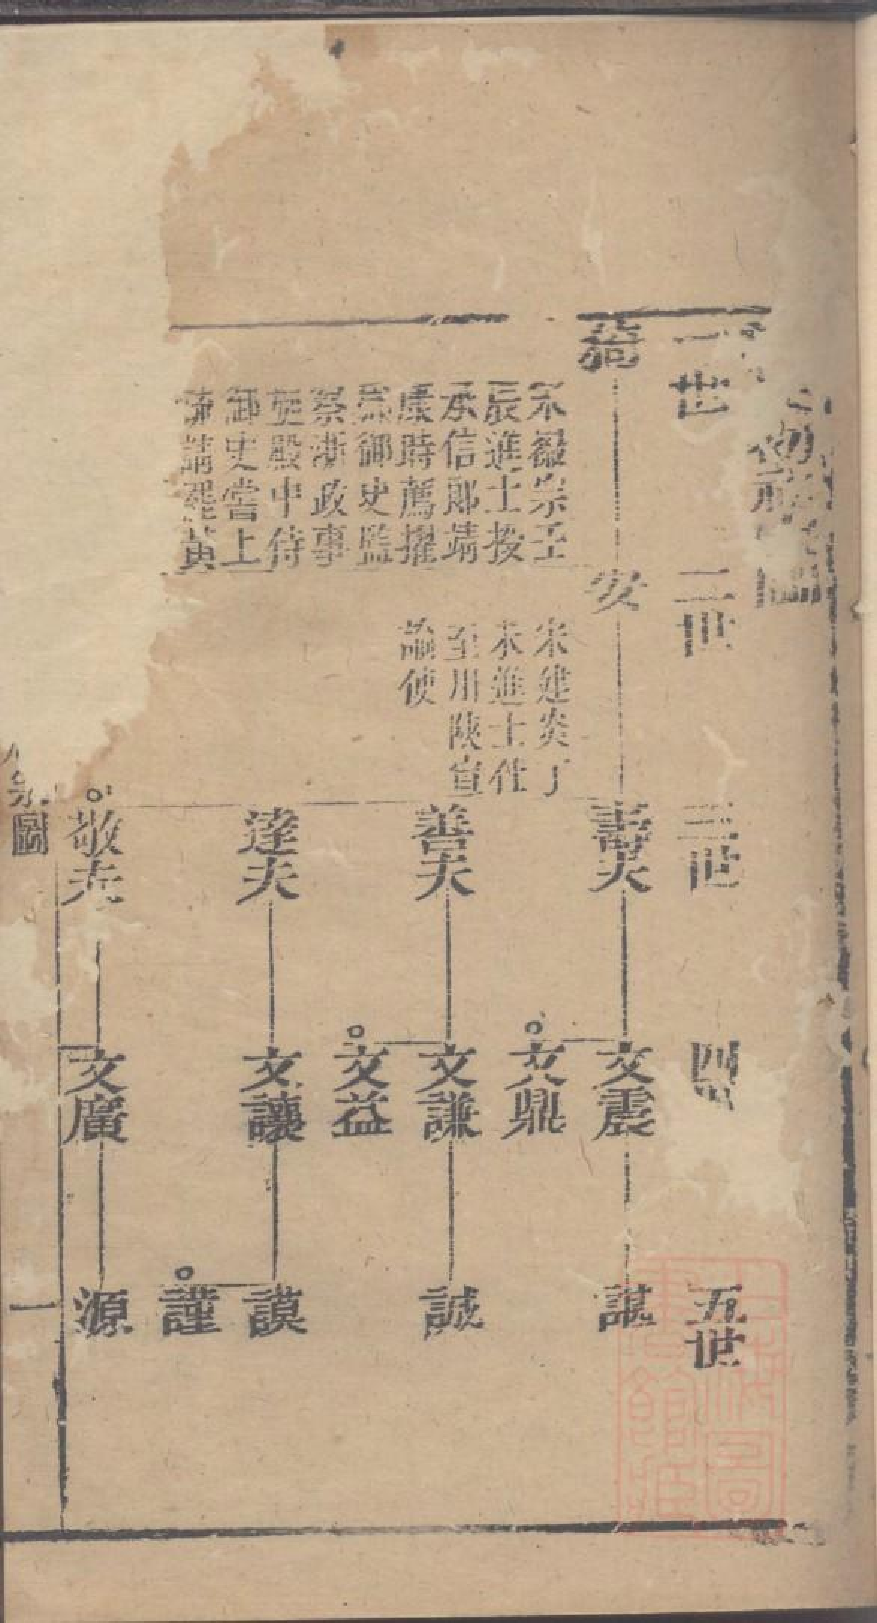 一世
二世
三世
四
五世
宋徽宗壬
辰進士授
承信郎靖
康時薦擢
御史監
察浙政事
殿中侍
御史嘗上
疏請理黃
安
宋建炎丁
未進士仕
至川陝宣
諭使
壽夫
善夫
達夫
敬夫
文震
文鼎
文謙
文益
文讓
文廣
謀
誠
謨
謹
源
宗圖
一